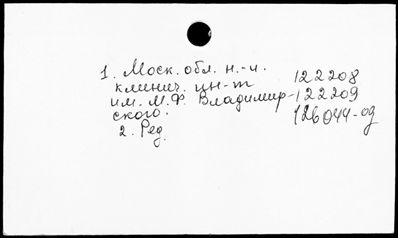 1. Моск. обл. н.-и. 122208
клинич. ин-т 122209
им. М.Ф. Владимир- 126044-од
ского.
2. Ред.